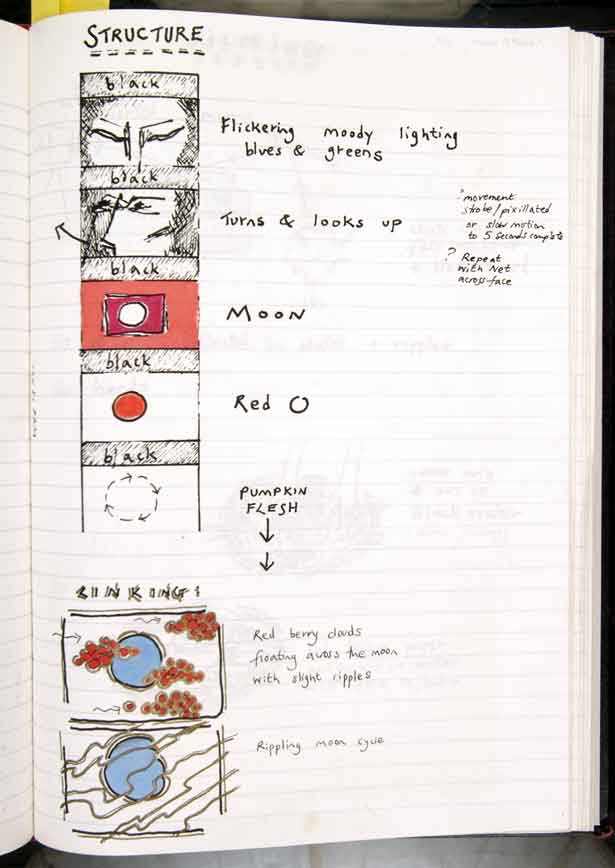 STRUCTURE
black
Flickering moody lighting
blues & greens
black
Turns & looks up
? movement
strobe/pixillated
or slow motion
to 5 seconds complete
? Repeat
with Net
across face
black
MOON
black
Red O
black
PUMPKIN
FLESH
Red berry clouds
floating across the moon
with slight ripples
Rippling moon cycle